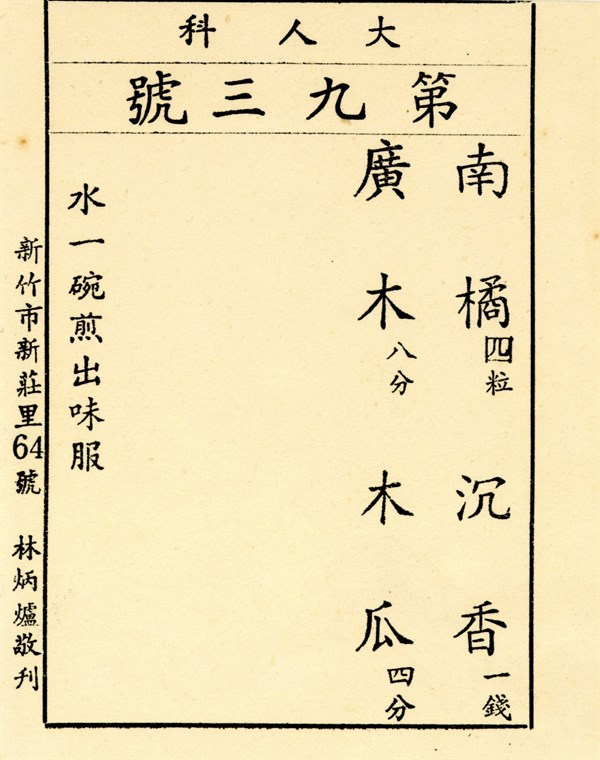 大人科
第九三號
南橘四粒 沉香一錢
廣木八分 木瓜四分
水一碗煎出味服
新竹市新莊里64號 林炳爐敬刊